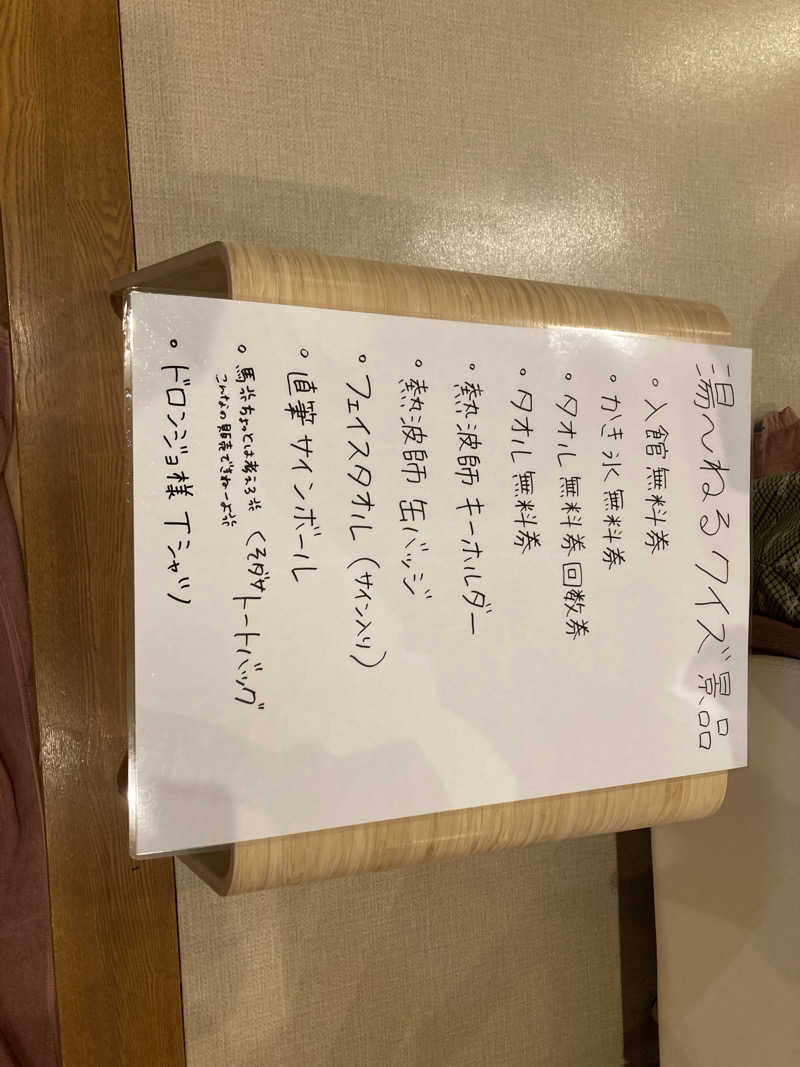 湯〜ねるクイズ景品
・入館無料券
・かき氷無料券
・タオル無料券回数券
・タオル無料券
・熱波師キーホルダー
・熱波師缶バッジ
・フェイスタオル(サイン入り)
・直筆サインボール
・馬渋ちょっとは考えろ渋 くそダサトートバッグ
こんなの販売できねーよ渋
・ドロンジョ様Tシャツ